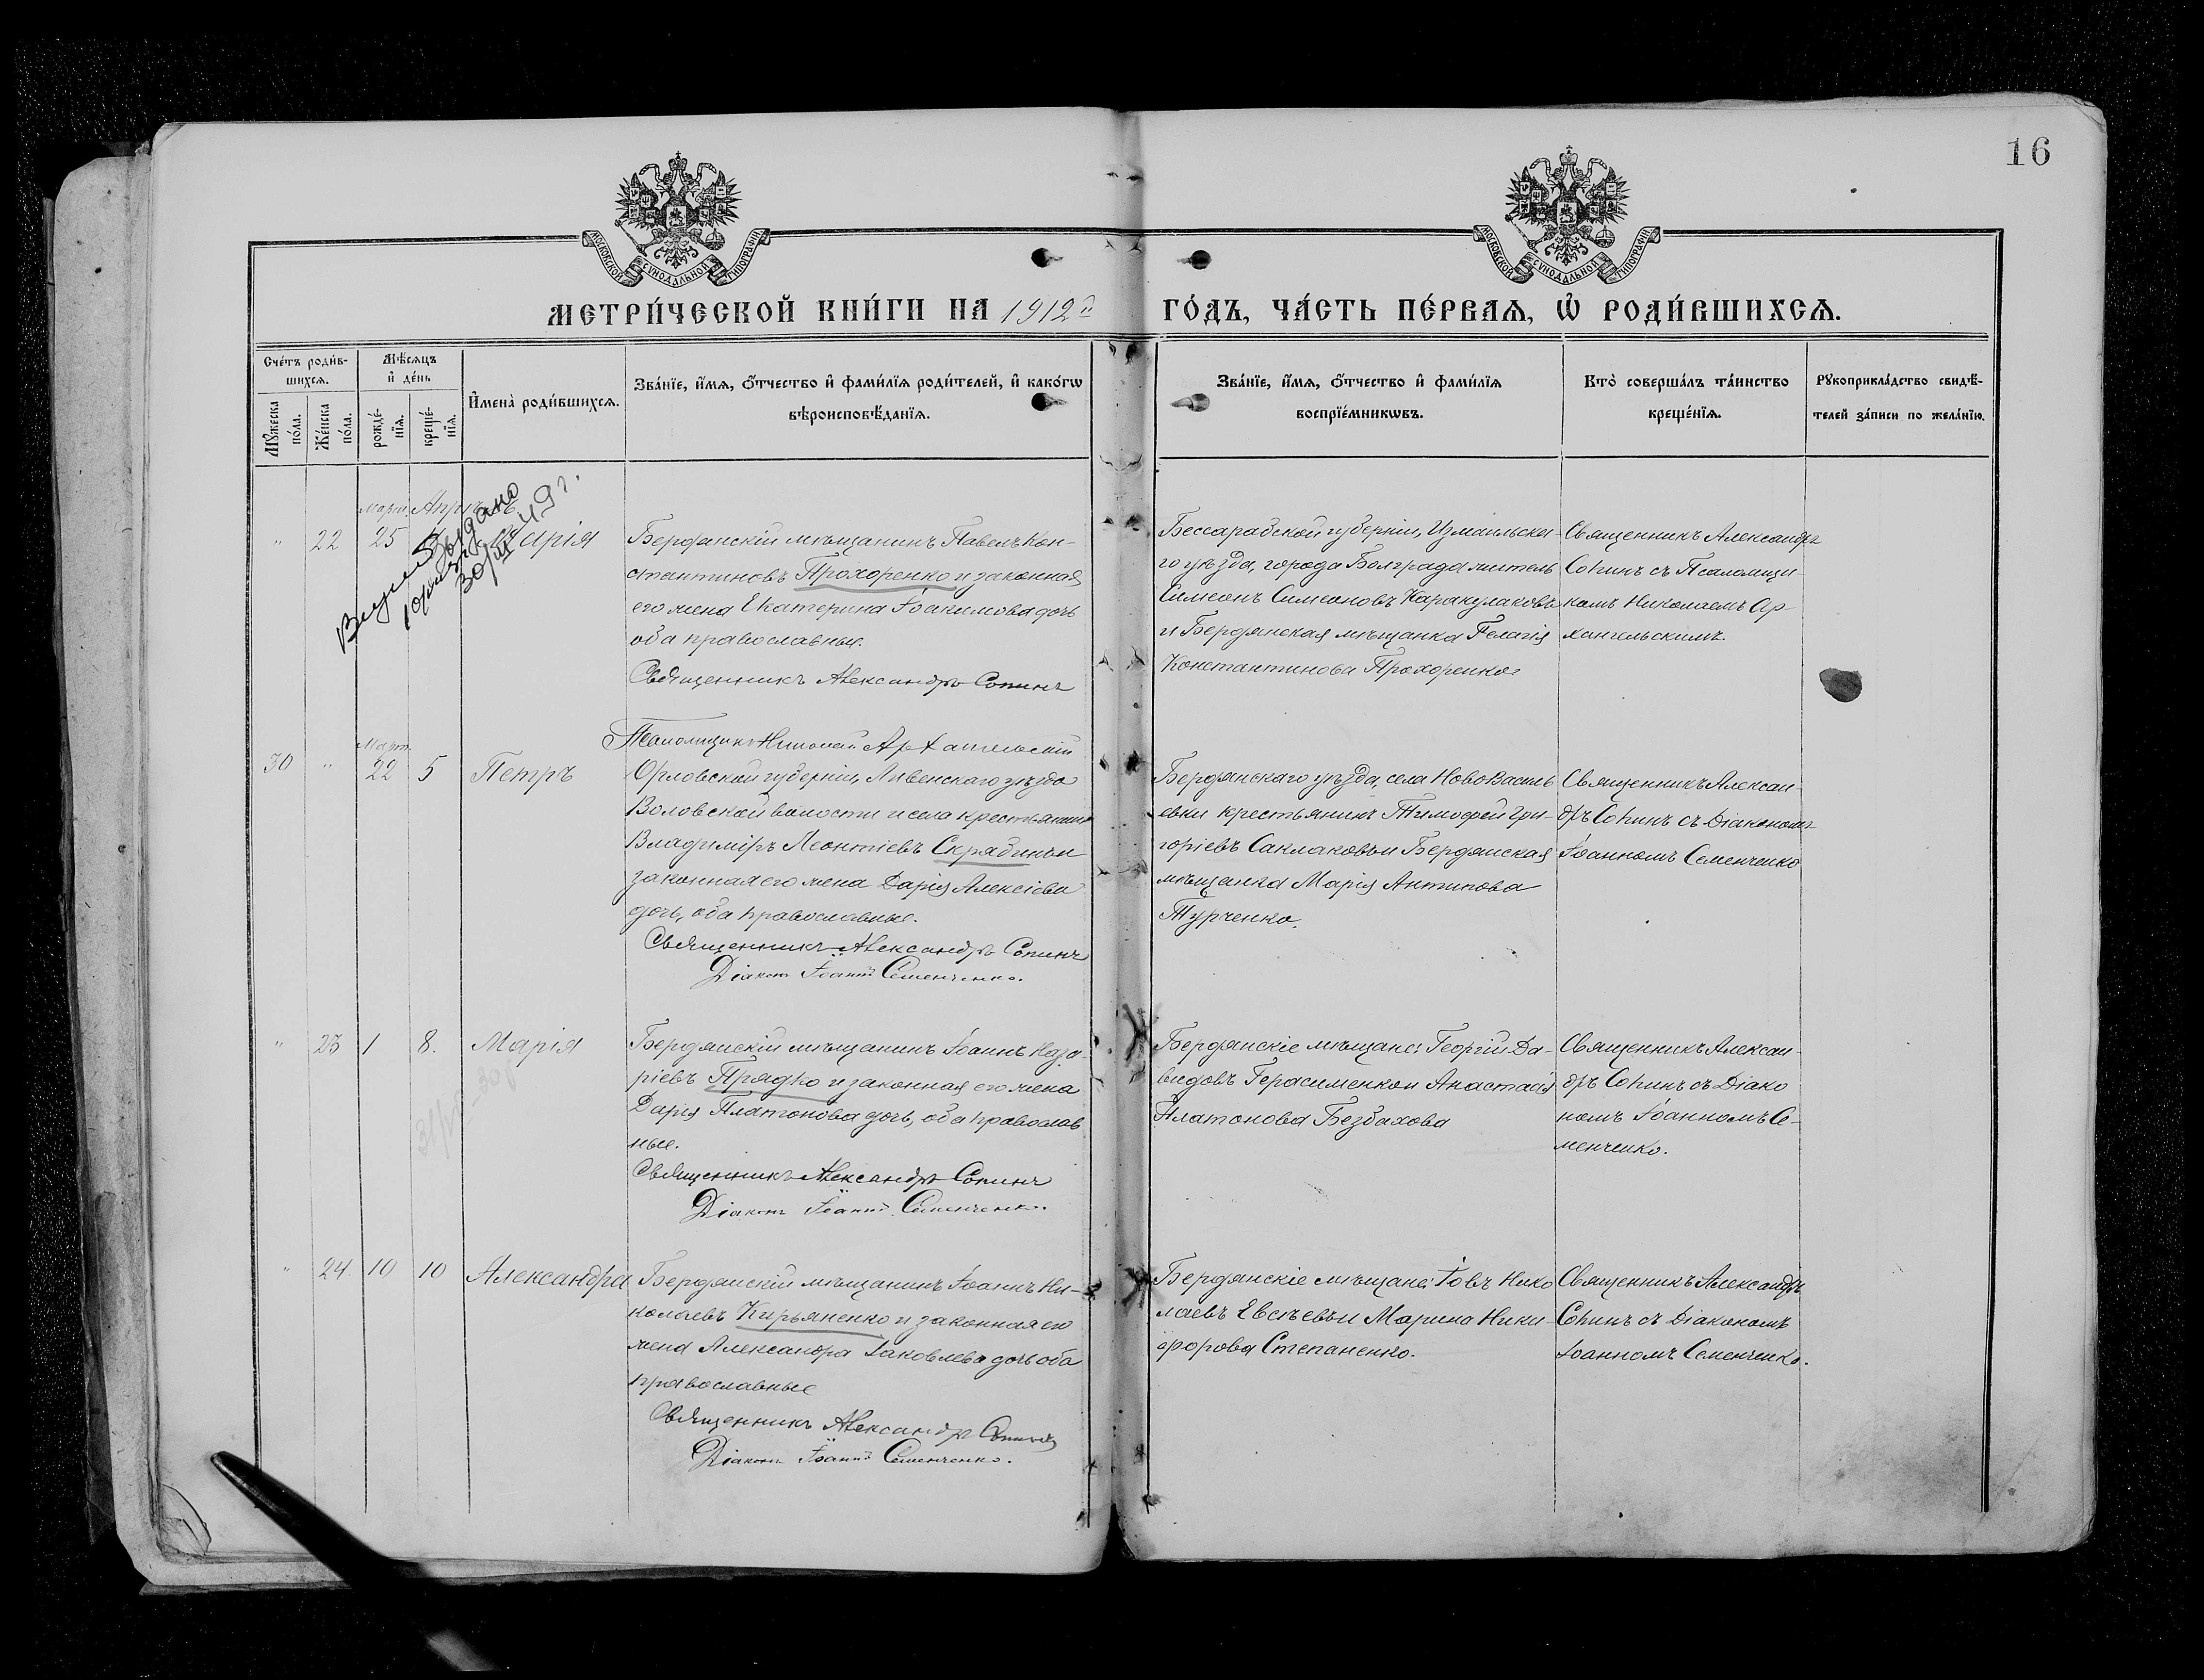 16
МОСКОВСКОЙ СѴНОДАЛЬНОЙ ТИПОГРАФІИ
МОСКОВСКОЙ СѴНОДАЛЬНОЙ ТИПОГРАФІИ
МЕТРИ́ЧЕСКОЙ КНИ́ГИ НА 1912й ГО́ДЪ, ЧА́СТЬ ПЕ́РВАѦ, Ѡ҆ РОДИ́ВШИХСѦ.
Сче́тъ роди́в-
шихсѧ.
Мѣ́сѧцъ
и҆ де́нь
Мꙋ́жеска
по́ла.
Же́нска
по́ла.
рожде́-
нїѧ.
креще́-
нїѧ.
И҆мена̀ роди́вшихсѧ.
Зва́нїе, и҆́мѧ, ѻ҆́тчество и҆ фами́лїѧ роди́телей, и҆ како́гѡ
вѣроисповѣ́данїѧ.
Зва́нїе, и҆́мѧ, ѻ҆́тчество и҆ фами́лїѧ
воспрїе́мникѡвъ.
Кто̀ соверша́лъ та́инство
креще́нїѧ.
Рꙋкоприкла́дство свидѣ́-
телей за́писи по жела́нїю.
Мартъ Апрѣль
" 22 25 Марія
выдано
30/III 49 г.
Бердянскій мѣщанинъ Павелъ Кон-
стантиновъ Прохоренко и законная
его жена Екатерина Іоакимова дочь
оба православные.
Священникъ Александръ Сопинъ
Псаломщикъ Николай Архангельскій
Бессарабской губерніи, Измаильска-
го уѣзда, города Болграда житель
Симеонъ Симеоновъ Каракулаковъ
и Бердянская мѣщанка Пелагія
Константинова Прохоренко
Священникъ Александръ
Сопинъ съ Псаломщи-
комъ Николаемъ Ар-
хангельскимъ.
Март.
30 " 22 5 Петръ
Орловской губерніи, Ливенскаго уѣзда
Воловской волости и села крестьянинъ
Владиміръ Леонтіевъ Скрябинъ и
законная его жена Дарія Алексіева
дочь, оба православные.
Священникъ Александръ Сопинъ
Діаконъ Іоаннъ Семенченко.
Бердянскаго уѣзда, села НовоВасиль
евки крестьянинъ Тимофей Гри-
горіевъ Саклаковъ и Бердянская
мѣщанка Марія Антипова
Турченко.
Священникъ Алексан-
дръ Сопинъ съ Діакономъ
Іоанномъ Семенченко
" 23 1 8. Марія
Бердянскій мѣщанинъ Іоаннъ Наза-
ріевъ Прядко и законная его жена
Дарія Платонова дочь, оба православ
ные.
Священникъ Александръ Сопинъ
Діаконъ Іоаннъ Семенченко.
Бердянскіе мѣщане: Георгій Да-
видовъ Герасименко и Анастасія
Платонова Безбахова
Священникъ Алексан-
дръ Сопинъ съ Діако
номъ Іоанномъ Се-
менченко.
" 24 10 10 Александра
Бердянскій мѣщанинъ Іоаннъ Ни-
колаевъ Кирьяненко и законная его
жена Александра Іаковлева дочь оба
православные
Священникъ Александръ Сопинъ
Діаконъ Іоаннъ Семенченко.
Бердянскіе мѣщане: Іовъ Нико
лаевъ Евсѣевъ и Марина Ники-
форова Степаненко.
Священникъ Александръ
Сопинъ съ Діакономъ
Іоанномъ Семенченко.